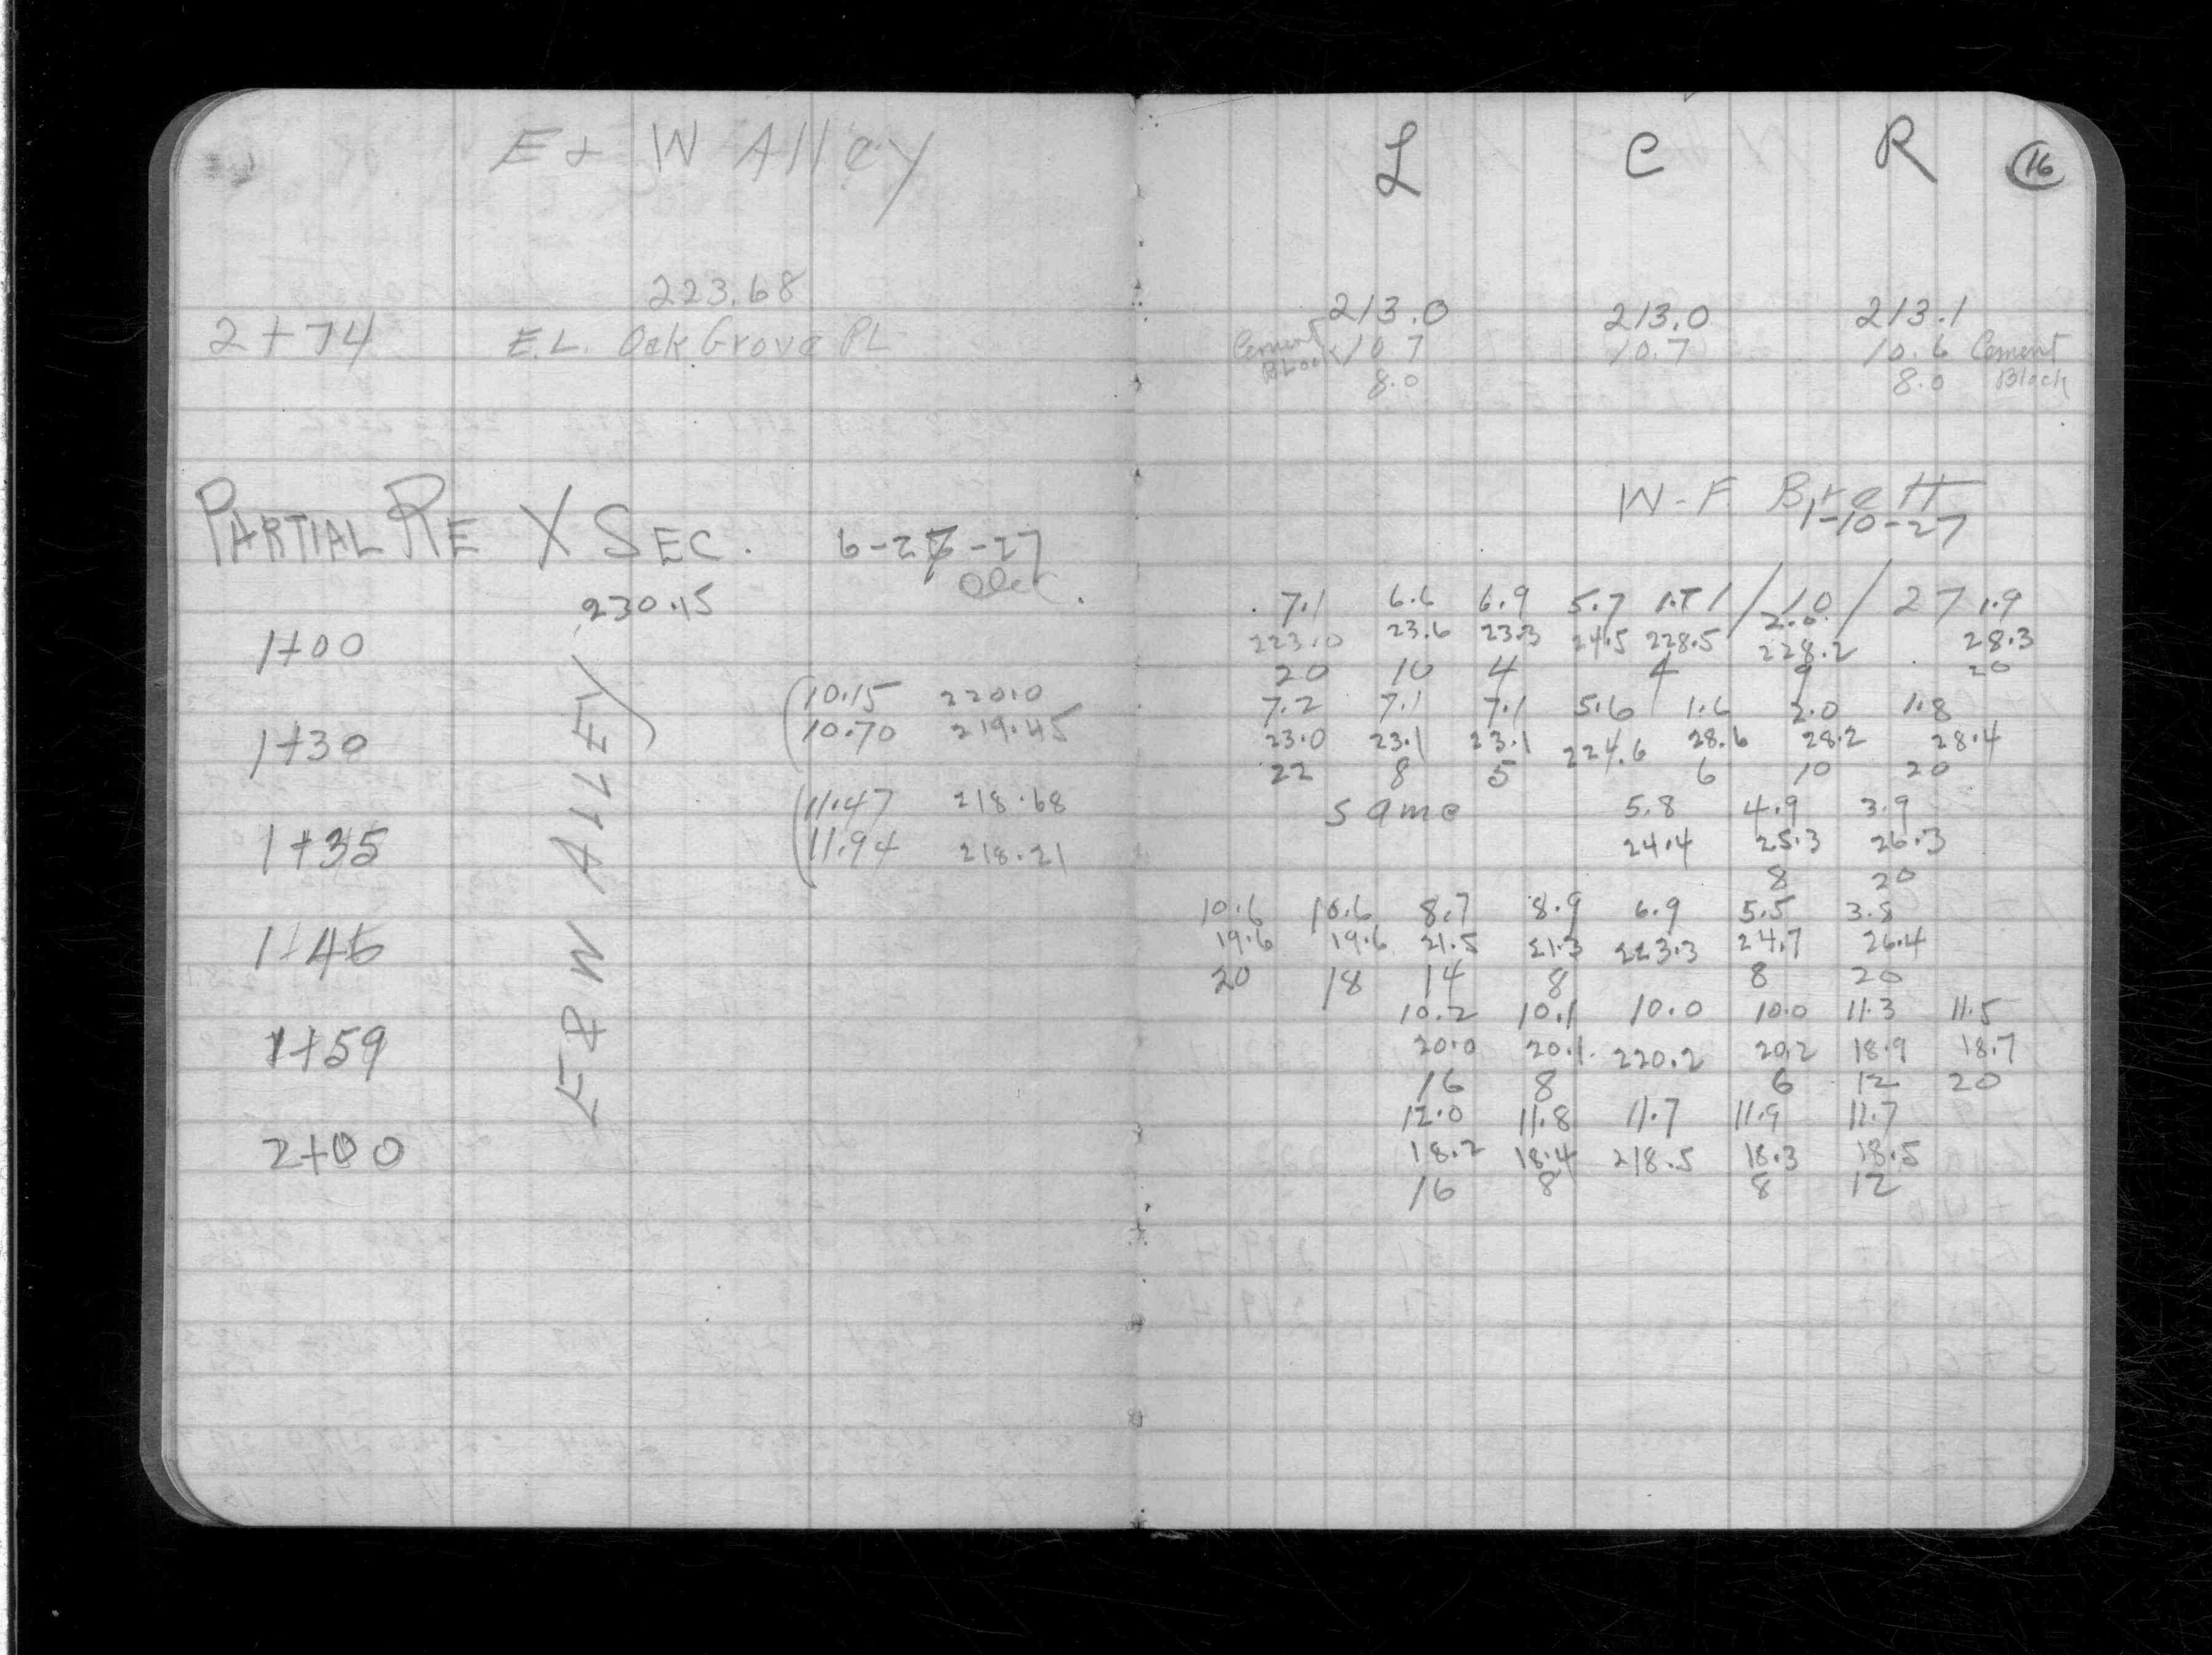 E + W Alley
223.68
2+74 E.L. Oak Grove PL
PARTIAL RE X SEC. 6-27-27
230.15
1+00
10.15 220.0
10.70 219.45
1+30
11.47 218.68
11.94 218.21
1+35
1+45
1+59
2+00
E & W ALLEY
L C R 16
213.0 213.0 213.1
Cement Block 10.7 10.7 10.6 Cement Block
8.0 8.0
W-F Brett
1-10-27
7.1 6.6 6.9 5.7 1/10/27 2.0 1.9
223.0 23.6 23.3 24.5 228.5 228.2 28.3
20 10 4 4 9 20
7.2 7.1 7.1 5.6 1.6 2.0 1.8
23.0 23.1 23.1 224.6 28.6 28.2 28.4
22 8 5 6 10 20
same 5.8 4.9 3.9
24.4 25.3 26.3
8 20
10.6 10.6 8.7 8.9 6.9 5.5 3.8
19.6 19.6 21.5 21.3 223.3 24.7 26.4
20 18 14 8 8 20
10.2 10.1 10.0 10.0 11.3 11.5
20.0 20.1 220.2 20.2 18.9 18.7
16 8 6 12 20
12.0 11.8 11.7 11.9 11.7
18.2 18.4 218.5 18.3 18.5
16 8 8 12